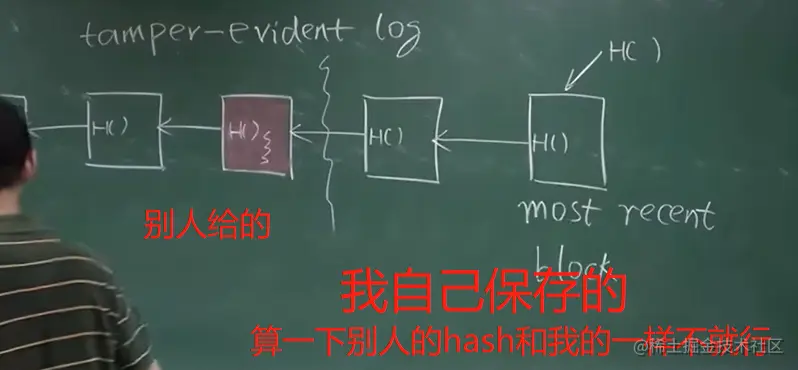 tamper-evident log
H()
H() H() H() H()
别人给的
most recent
block
我自己保存的
算一下别人的hash和我的一样不就行
@稀土掘金技术社区